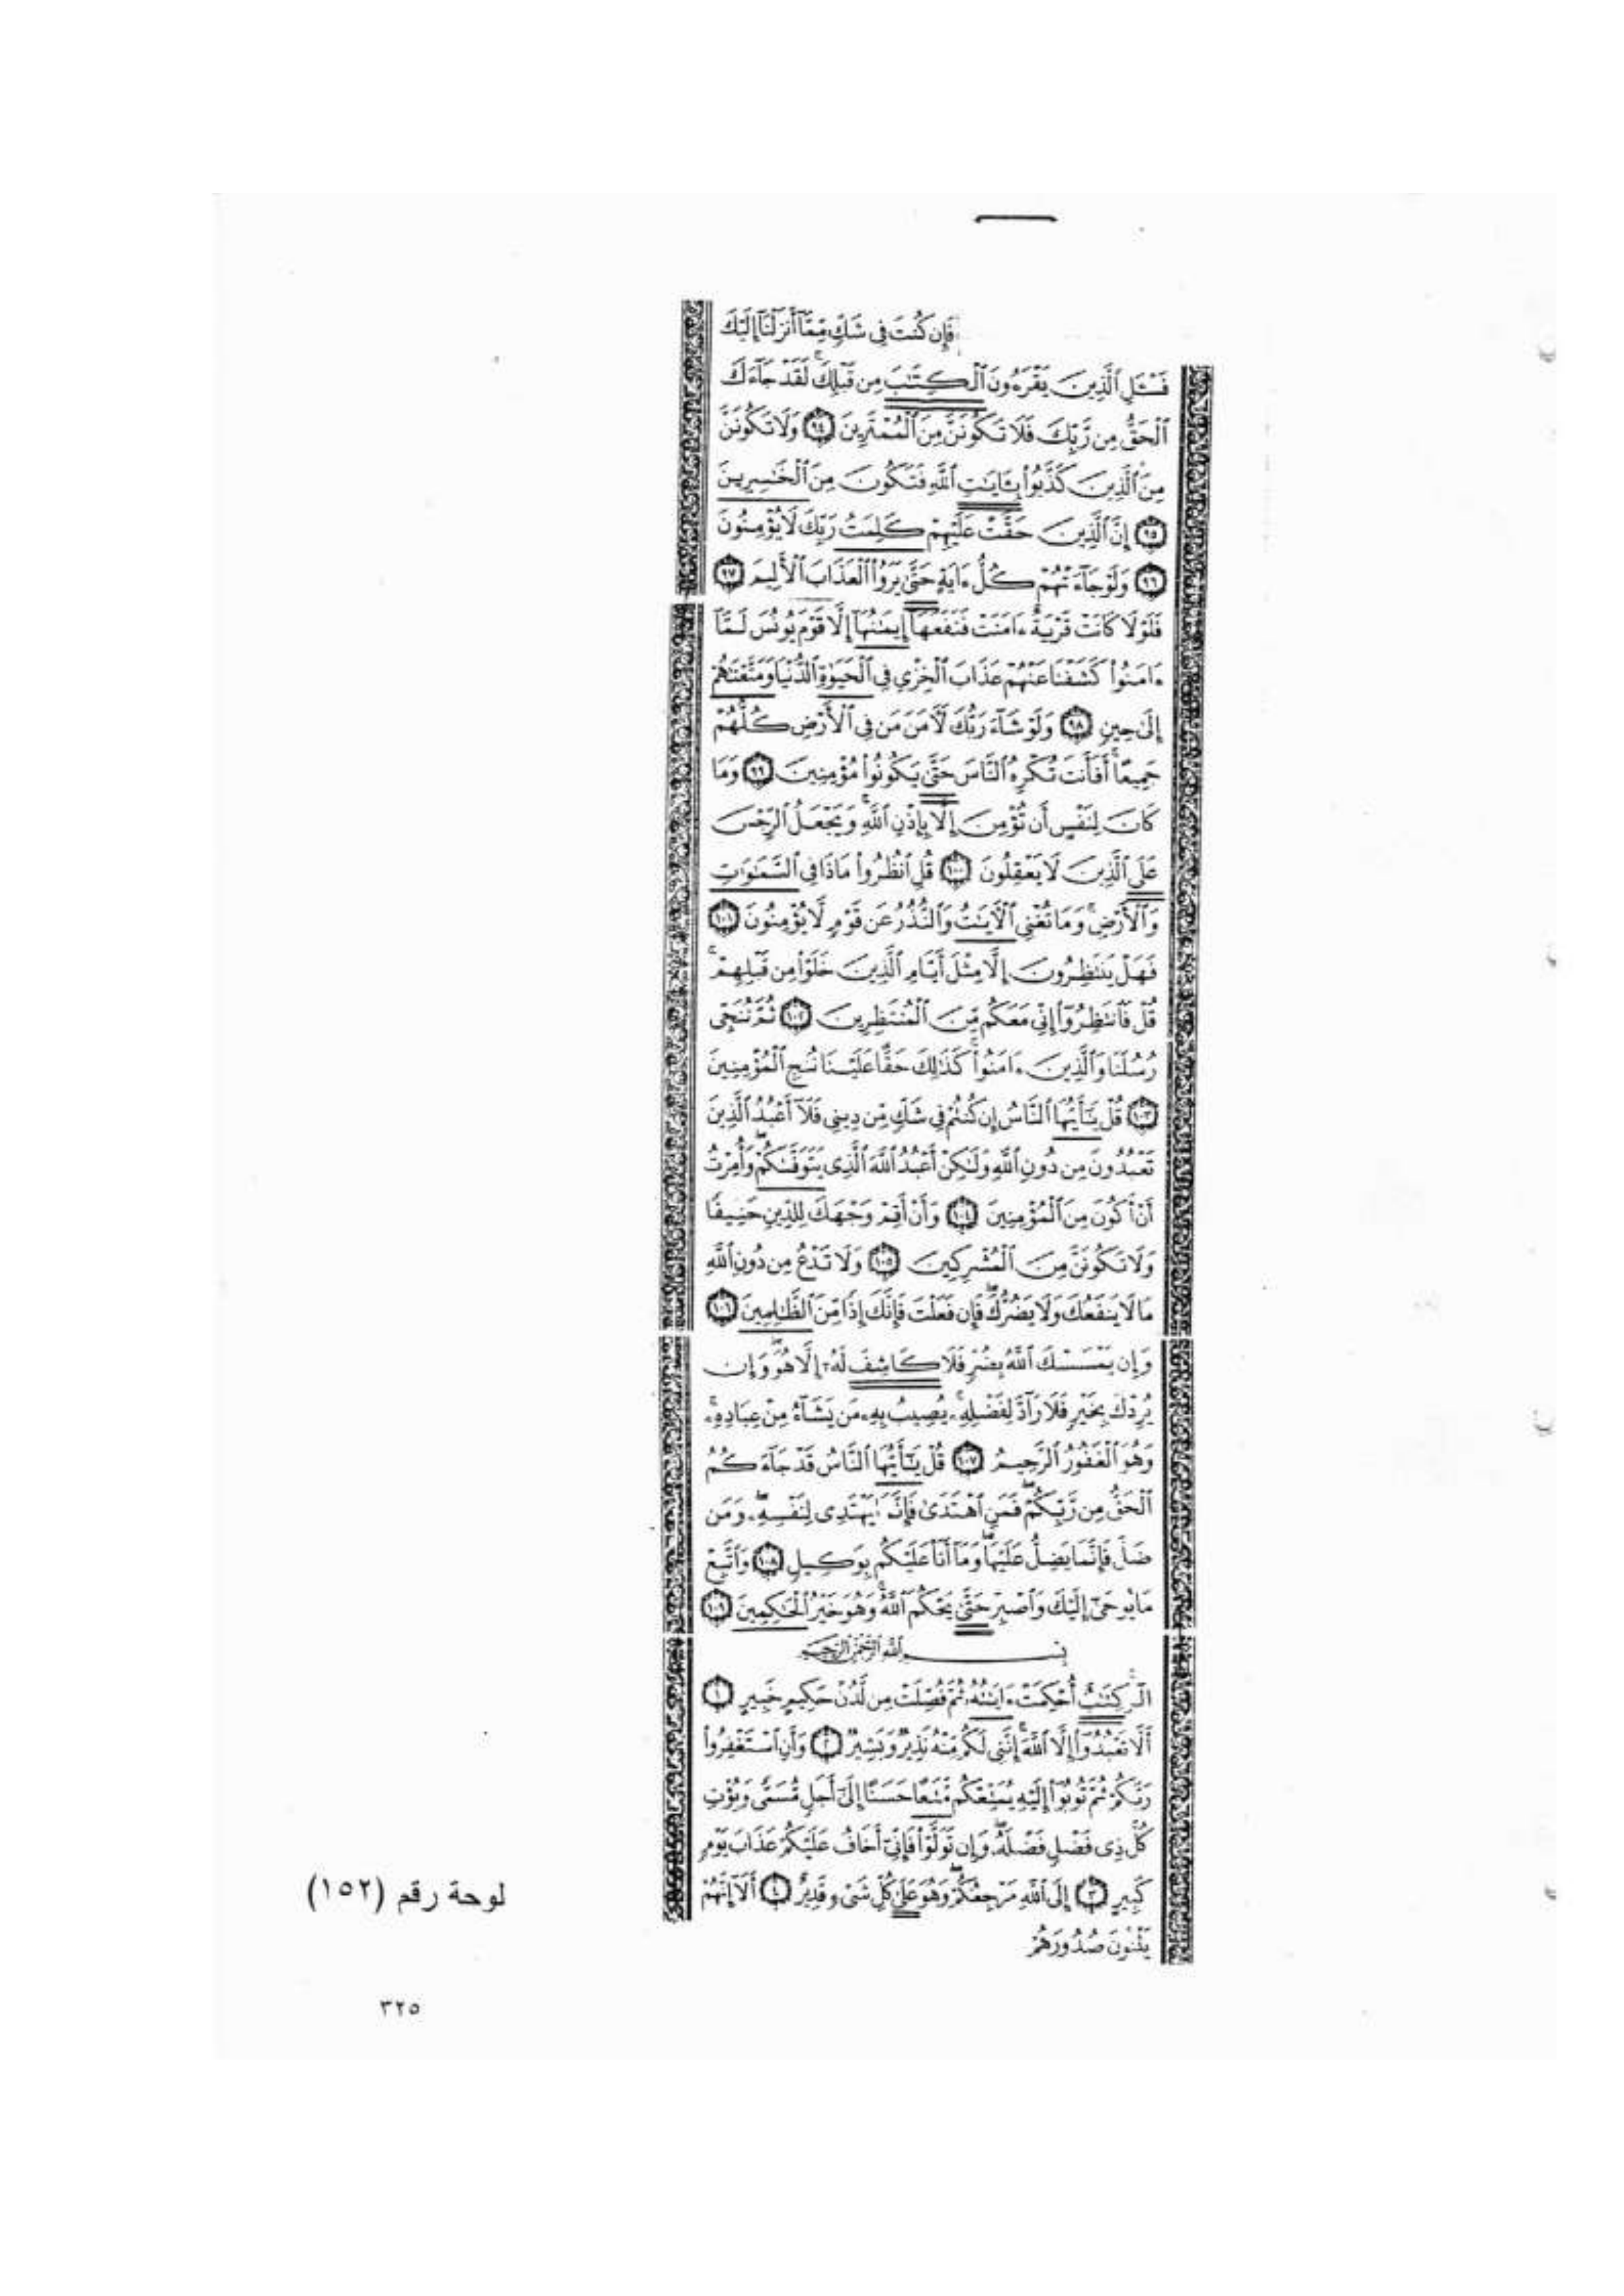 فَإِن كُنتَ فِى شَكٍّ مِّمَّآ أَنزَلْنَآ إِلَيْكَ
فَسْـَٔلِ ٱلَّذِينَ يَقْرَءُونَ ٱلْكِتَـٰبَ مِن قَبْلِكَ ۚ لَقَدْ جَآءَكَ
ٱلْحَقُّ مِن رَّبِّكَ فَلَا تَكُونَنَّ مِنَ ٱلْمُمْتَرِينَ ٩٤ وَلَا تَكُونَنَّ
مِنَ ٱلَّذِينَ كَذَّبُوا۟ بِـَٔايَـٰتِ ٱللَّهِ فَتَكُونَ مِنَ ٱلْخَـٰسِرِينَ
٩٥ إِنَّ ٱلَّذِينَ حَقَّتْ عَلَيْهِمْ كَلِمَتُ رَبِّكَ لَا يُؤْمِنُونَ
٩٦ وَلَوْ جَآءَتْهُمْ كُلُّ ءَايَةٍ حَتَّىٰ يَرَوُا۟ ٱلْعَذَابَ ٱلْأَلِيمَ ٩٧
فَلَوْلَا كَانَتْ قَرْيَةٌ ءَامَنَتْ فَنَفَعَهَآ إِيمَـٰنُهَآ إِلَّا قَوْمَ يُونُسَ لَمَّآ
ءَامَنُوا۟ كَشَفْنَا عَنْهُمْ عَذَابَ ٱلْخِزْىِ فِى ٱلْحَيَوٰةِ ٱلدُّنْيَا وَمَتَّعْنَـٰهُمْ
إِلَىٰ حِينٍ ٩٨ وَلَوْ شَآءَ رَبُّكَ لَـَٔامَنَ مَن فِى ٱلْأَرْضِ كُلُّهُمْ
جَمِيعًا ۚ أَفَأَنتَ تُكْرِهُ ٱلنَّاسَ حَتَّىٰ يَكُونُوا۟ مُؤْمِنِينَ ٩٩ وَمَا
كَانَ لِنَفْسٍ أَن تُؤْمِنَ إِلَّا بِإِذْنِ ٱللَّهِ ۚ وَيَجْعَلُ ٱلرِّجْسَ
عَلَى ٱلَّذِينَ لَا يَعْقِلُونَ ١٠٠ قُلِ ٱنظُرُوا۟ مَاذَا فِى ٱلسَّمَـٰوَٰتِ
وَٱلْأَرْضِ ۚ وَمَا تُغْنِى ٱلْـَٔايَـٰتُ وَٱلنُّذُرُ عَن قَوْمٍ لَّا يُؤْمِنُونَ ١٠١
فَهَلْ يَنتَظِرُونَ إِلَّا مِثْلَ أَيَّامِ ٱلَّذِينَ خَلَوْا۟ مِن قَبْلِهِمْ ۚ
قُلْ فَٱنتَظِرُوٓا۟ إِنِّى مَعَكُم مِّنَ ٱلْمُنتَظِرِينَ ١٠٢ ثُمَّ نُنَجِّى
رُسُلَنَا وَٱلَّذِينَ ءَامَنُوا۟ ۚ كَذَٰلِكَ حَقًّا عَلَيْنَا نُنجِ ٱلْمُؤْمِنِينَ
١٠٣ قُلْ يَـٰٓأَيُّهَا ٱلنَّاسُ إِن كُنتُمْ فِى شَكٍّ مِّن دِينِى فَلَآ أَعْبُدُ ٱلَّذِينَ
تَعْبُدُونَ مِن دُونِ ٱللَّهِ وَلَـٰكِنْ أَعْبُدُ ٱللَّهَ ٱلَّذِى يَتَوَفَّىٰكُمْ ۖ وَأُمِرْتُ
أَنْ أَكُونَ مِنَ ٱلْمُؤْمِنِينَ ١٠٤ وَأَنْ أَقِمْ وَجْهَكَ لِلدِّينِ حَنِيفًا
وَلَا تَكُونَنَّ مِنَ ٱلْمُشْرِكِينَ ١٠٥ وَلَا تَدْعُ مِن دُونِ ٱللَّهِ
مَا لَا يَنفَعُكَ وَلَا يَضُرُّكَ ۖ فَإِن فَعَلْتَ فَإِنَّكَ إِذًا مِّنَ ٱلظَّـٰلِمِينَ ١٠٦
وَإِن يَمْسَسْكَ ٱللَّهُ بِضُرٍّ فَلَا كَاشِفَ لَهُۥٓ إِلَّا هُوَ ۖ وَإِن
يُرِدْكَ بِخَيْرٍ فَلَا رَآدَّ لِفَضْلِهِۦ ۚ يُصِيبُ بِهِۦ مَن يَشَآءُ مِنْ عِبَادِهِۦ ۚ
وَهُوَ ٱلْغَفُورُ ٱلرَّحِيمُ ١٠٧ قُلْ يَـٰٓأَيُّهَا ٱلنَّاسُ قَدْ جَآءَكُمُ
ٱلْحَقُّ مِن رَّبِّكُمْ ۖ فَمَنِ ٱهْتَدَىٰ فَإِنَّمَا يَهْتَدِى لِنَفْسِهِۦ ۖ وَمَن
ضَلَّ فَإِنَّمَا يَضِلُّ عَلَيْهَا ۖ وَمَآ أَنَا۠ عَلَيْكُم بِوَكِيلٍ ١٠٨ وَٱتَّبِعْ
مَا يُوحَىٰٓ إِلَيْكَ وَٱصْبِرْ حَتَّىٰ يَحْكُمَ ٱللَّهُ ۚ وَهُوَ خَيْرُ ٱلْحَـٰكِمِينَ ١٠٩
بِسْمِ ٱللَّهِ ٱلرَّحْمَـٰنِ ٱلرَّحِيمِ
الٓر ۚ كِتَـٰبٌ أُحْكِمَتْ ءَايَـٰتُهُۥ ثُمَّ فُصِّلَتْ مِن لَّدُنْ حَكِيمٍ خَبِيرٍ ١
أَلَّا تَعْبُدُوٓا۟ إِلَّا ٱللَّهَ ۚ إِنَّنِى لَكُم مِّنْهُ نَذِيرٌ وَبَشِيرٌ ٢ وَأَنِ ٱسْتَغْفِرُوا۟
رَبَّكُمْ ثُمَّ تُوبُوٓا۟ إِلَيْهِ يُمَتِّعْكُم مَّتَـٰعًا حَسَنًا إِلَىٰٓ أَجَلٍ مُّسَمًّى وَيُؤْتِ
كُلَّ ذِى فَضْلٍ فَضْلَهُۥ ۖ وَإِن تَوَلَّوْا۟ فَإِنِّىٓ أَخَافُ عَلَيْكُمْ عَذَابَ يَوْمٍ
كَبِيرٍ ٣ إِلَى ٱللَّهِ مَرْجِعُكُمْ ۖ وَهُوَ عَلَىٰ كُلِّ شَىْءٍ قَدِيرٌ ٤ أَلَآ إِنَّهُمْ
يَثْنُونَ صُدُورَهُمْ
لوحة رقم (١٥٢)
٣٢٥